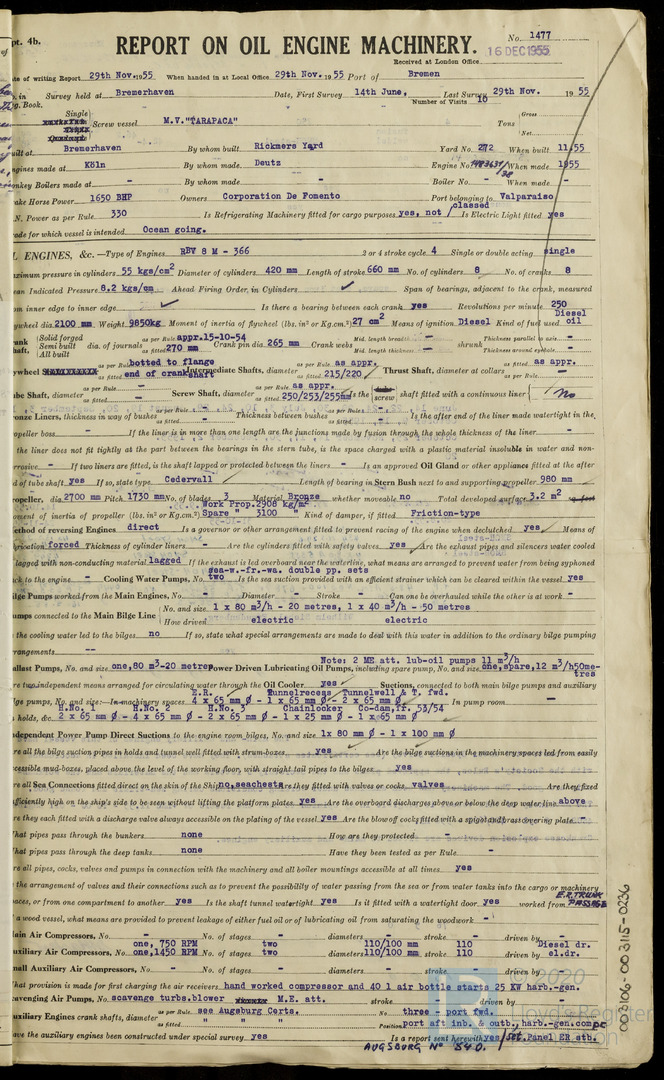 pt. 4b.
No. 1477
REPORT ON OIL ENGINE MACHINERY.
16 DEC 1955
Received at London Office
ate of writing Report 29th Nov. 1955 When handed in at Local Office 29th Nov. 1955 Port of Bremen
in Survey held at Bremerhaven Date, First Survey 14th June, Last Survey 29th Nov. 1955
g. Book. Number of Visits 10
Single Screw vessel M.V."TARAPACA" Tons Gross Net
uilt at Bremerhaven By whom built Rickmers Yard Yard No. 272 When built 11/55
ngines made at Köln By whom made Deutz Engine No. When made 1955
onkey Boilers made at - By whom made - Boiler No. - When made -
ake Horse Power 1650 BHP Owners Corporation De Fomento Port belonging to Valparaiso
N. Power as per Rule 330 Is Refrigerating Machinery fitted for cargo purposes yes, not classed Is Electric Light fitted yes
ade for which vessel is intended Ocean going.
L ENGINES, &c. —Type of Engines RBV 8 M - 366 2 or 4 stroke cycle 4 Single or double acting single
ximum pressure in cylinders 55 kgs/cm2 Diameter of cylinders 420 mm Length of stroke 660 mm No. of cylinders 8 No. of cranks 8
ean Indicated Pressure 8.2 kgs/cm Ahead Firing Order in Cylinders ✓ Span of bearings, adjacent to the crank, measured
om inner edge to inner edge ✓ Is there a bearing between each crank yes Revolutions per minute 250
ywheel dia. 2100 mm Weight 9850kg Moment of inertia of flywheel (lbs. in2 or Kg.cm.2) 27 cm2 Means of ignition Diesel Kind of fuel used Diesel oil
rank haft, Solid forged Semi built All built dia. of journals as per Rule appr.15-10-54 as fitted 270 mm Crank pin dia. 265 mm Crank webs Mid. length breadth - Mid. length thickness - Thickness parallel to axis - Thickness around eyehole -
ywheel as per Rule botted to flange as fitted end of crankshaft Intermediate Shafts, diameter as per Rule as appr. as fitted 215/220 Thrust Shaft, diameter at collars as per Rule as appr. as fitted -
ube Shaft, diameter as per Rule - as fitted - Screw Shaft, diameter as per Rule as appr. as fitted 250/253/255mm Is the screw shaft fitted with a continuous liner No
onze Liners, thickness in way of bushes as per Rule - as fitted - Thickness between bushes as per Rule as fitted - Is the after end of the liner made watertight in the,
opeller boss - If the liner is in more than one length are the junctions made by fusion through the whole length of the liner -
the liner does not fit tightly at the part between the bearings in the stern tube, is the space charged with a plastic material insoluble in water and non-
rrosive - If two liners are fitted, is the shaft lapped or protected between the liners - Is an approved Oil Gland or other appliance fitted at the after
d of tube shaft yes If so, state type Cedervall Length of bearing in Stern Bush next to and supporting propeller 980 mm
opeller, dia 2700 mm Pitch 1730 mm No. of blades 3 Material Bronze whether moveable no Total developed surface 3.2 m2
oment of inertia of propeller (lbs. in2 or Kg.cm.2) Work Prop. 2908 kg/m2 Spare " 3100 " Kind of damper, if fitted Friction-type
ethod of reversing Engines direct Is a governor or other arrangement fitted to prevent racing of the engine when declutched yes Means of
brication forced Thickness of cylinder liners - Are the cylinders fitted with safety valves yes Are the exhaust pipes and silencers water cooled
lagged with non-conducting material lagged If the exhaust is led overboard near the waterline, what means are arranged to prevent water from being syphoned
ck to the engine - Cooling Water Pumps, No. sea-w.-fr.-wa. double pp. sets two Is the sea suction provided with an efficient strainer which can be cleared within the vessel yes
lge Pumps worked from the Main Engines, No. - Diameter - Stroke - Can one be overhauled while the other is at work -
umps connected to the Main Bilge Line No. and size 1 x 80 m3/h - 20 metres, 1 x 40 m3/h - 50 metres
How driven electric electric
the cooling water led to the bilges no If so, state what special arrangements are made to deal with this water in addition to the ordinary bilge pumping
rangements --
Note: 2 ME att. lub-oil pumps 11 m3/h
allast Pumps, No. and size one,80 m3-20 metres Power Driven Lubricating Oil Pumps, including spare pump, No. and size one,spare,12 m3/h 50me-tres
re two independent means arranged for circulating water through the Oil Cooler yes Suctions, connected to both main bilge pumps and auxiliary
E.R. Tunnelrecess Tunnelwell & T. fwd.
lge pumps, No. and size:—In machinery spaces 4 x 65 mm Ø - 1 x 65 mm Ø - 2 x 65 mm Ø In pump room -
H.No. 1 H.No. 2 H.No. 3 Chainlocker Co-dam,fr. 53/54
holds, &c. 2 x 65 mm Ø - 4 x 65 mm Ø - 2 x 65 mm Ø - 1 x 25 mm Ø - 1 x 65 mm Ø
dependent Power Pump Direct Suctions to the engine room bilges, No. and size 1x 80 mm Ø - 1 x 100 mm Ø
re all the bilge suction pipes in holds and tunnel well fitted with strum-boxes yes Are the bilge suctions in the machinery spaces led from easily
cessible mud-boxes, placed above the level of the working floor, with straight tail pipes to the bilges yes
re all Sea Connections fitted direct on the skin of the Ship no,seachests Are they fitted with valves or cocks valves Are they fixed
fficiently high on the ship's side to be seen without lifting the platform plates yes Are the overboard discharges above or below the deep water line above
re they each fitted with a discharge valve always accessible on the plating of the vessel yes Are the blow off cocks fitted with a spigot and brass covering plate -
hat pipes pass through the bunkers none How are they protected -
hat pipes pass through the deep tanks none Have they been tested as per Rule -
re all pipes, cocks, valves and pumps in connection with the machinery and all boiler mountings accessible at all times yes
the arrangement of valves and their connections such as to prevent the possibility of water passing from the sea or from water tanks into the cargo or machinery
aces, or from one compartment to another yes Is the shaft tunnel watertight yes Is it fitted with a watertight door yes worked from E.R.TRUNK PASSAGE
a wood vessel, what means are provided to prevent leakage of either fuel oil or of lubricating oil from saturating the woodwork -
ain Air Compressors, No. - No. of stages - diameters - stroke - driven by -
one, 750 RPM two 110/100 mm 110 Diesel dr.
uxiliary Air Compressors, No. one,1450 RPM No. of stages two diameters 110/100 mm stroke 110 driven by el.dr.
mall Auxiliary Air Compressors, No. - No. of stages - diameters - stroke - driven by -
hat provision is made for first charging the air receivers hand worked compressor and 40 l air bottle starts 25 KW harb.-gen.
cavenging Air Pumps, No. scavenge turbo.blower M.E. att. stroke - driven by -
uxiliary Engines crank shafts, diameter as per Rule see Augsburg Certs. as fitted " " No. three - port fwd.
Position port aft inb. & outb., harb.-gen.comp
ave the auxiliary engines been constructed under special survey yes Is a report sent herewith yes/ Set. Panel ER stb.
AUGSBURG No 540.
003106-003115-0236
2020
Lloyd's Register
Foundation